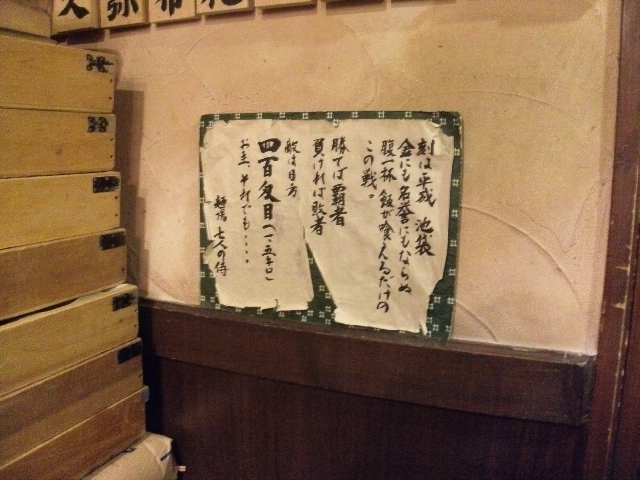 刻は平成 池袋
金にも名誉にもならぬ
腹一杯 飯が喰えるだけの
この戦。
勝てば覇者
負ければ敗者
敵は目方
四百匁目(一・五キロ)
お主、それでも・・・・
麺場 七人の侍